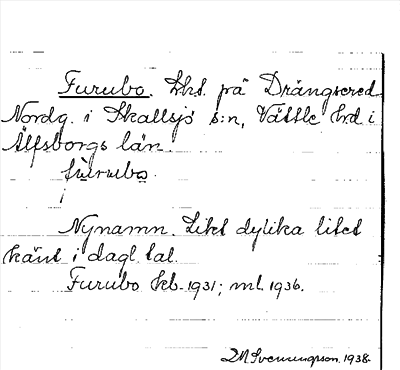 Furubo. Lhs. på Drängsered
Nordg. i Skallsjö s:n, Vättle hrd i
Älfsborgs län.
fùrubo.
Nynamn. Likt dylika litet
känt i dagl. tal.
Furubo kb. 1931; ml. 1936.
1938.